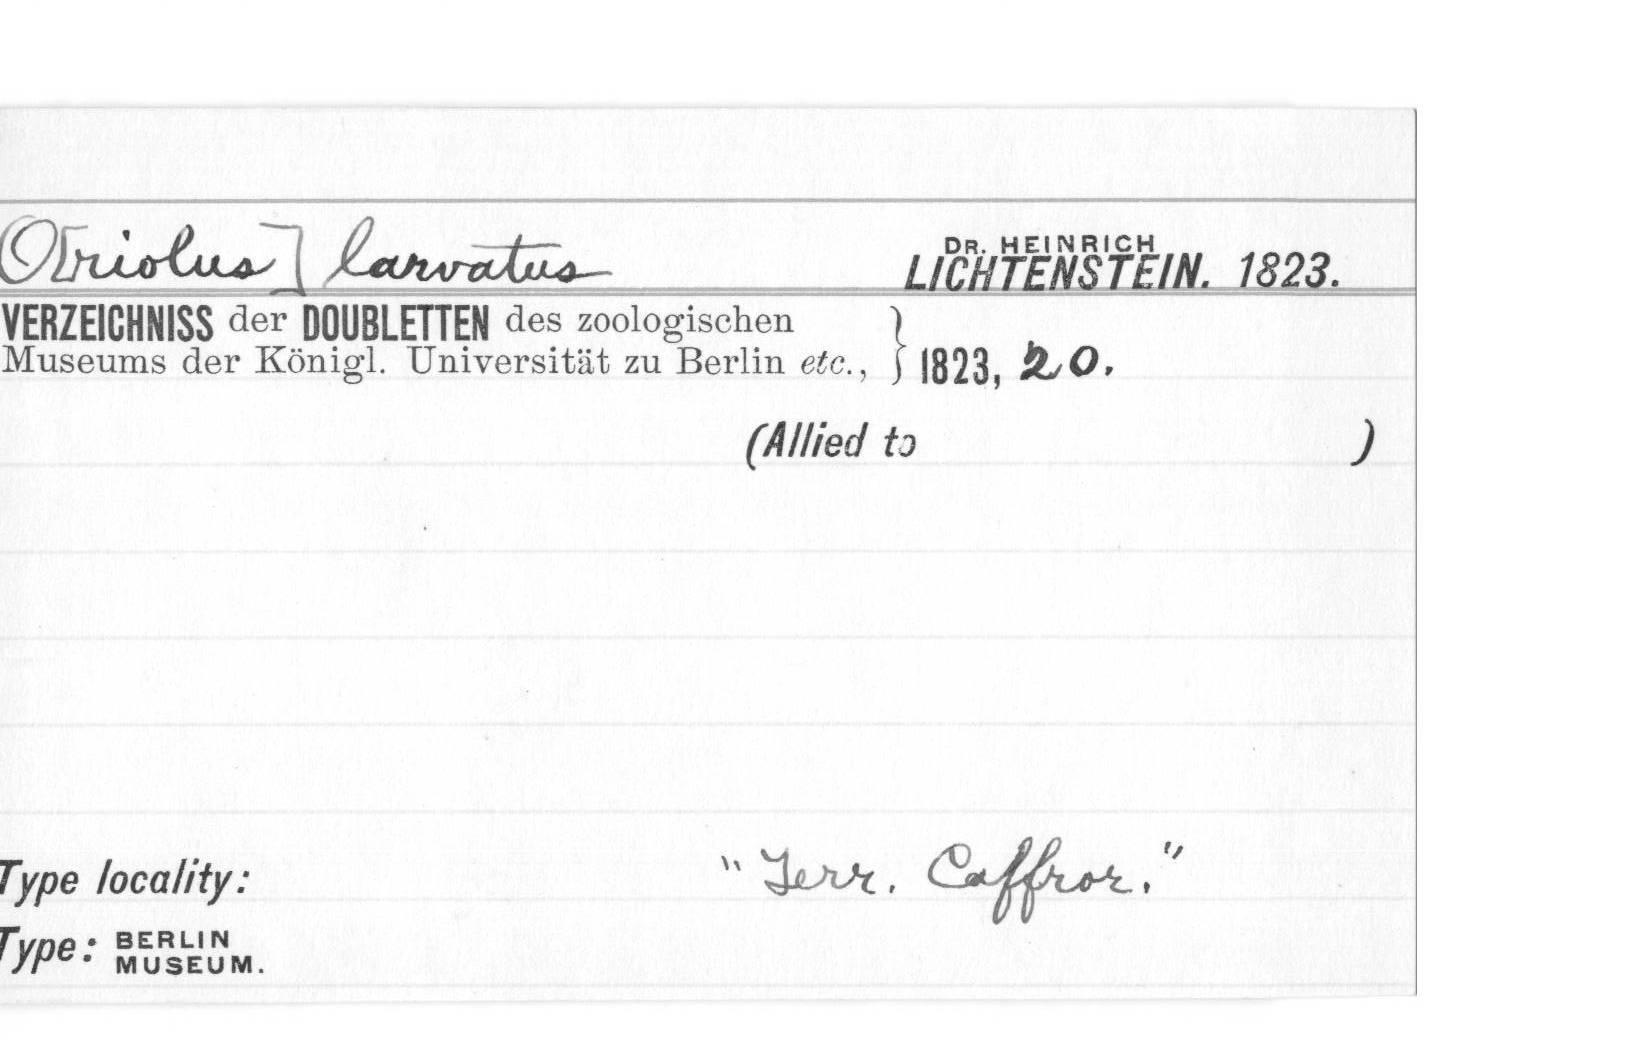 O[riolus] larvatus
DR. HEINRICH
LICHTENSTEIN. 1823.
VERZEICHNISS der DOUBLETTEN des zoologischen
Museums der Königl. Universität zu Berlin etc., } 1823, 20.
(Allied to )
Type locality: "Terr. Caffror."
Type: BERLIN
MUSEUM.